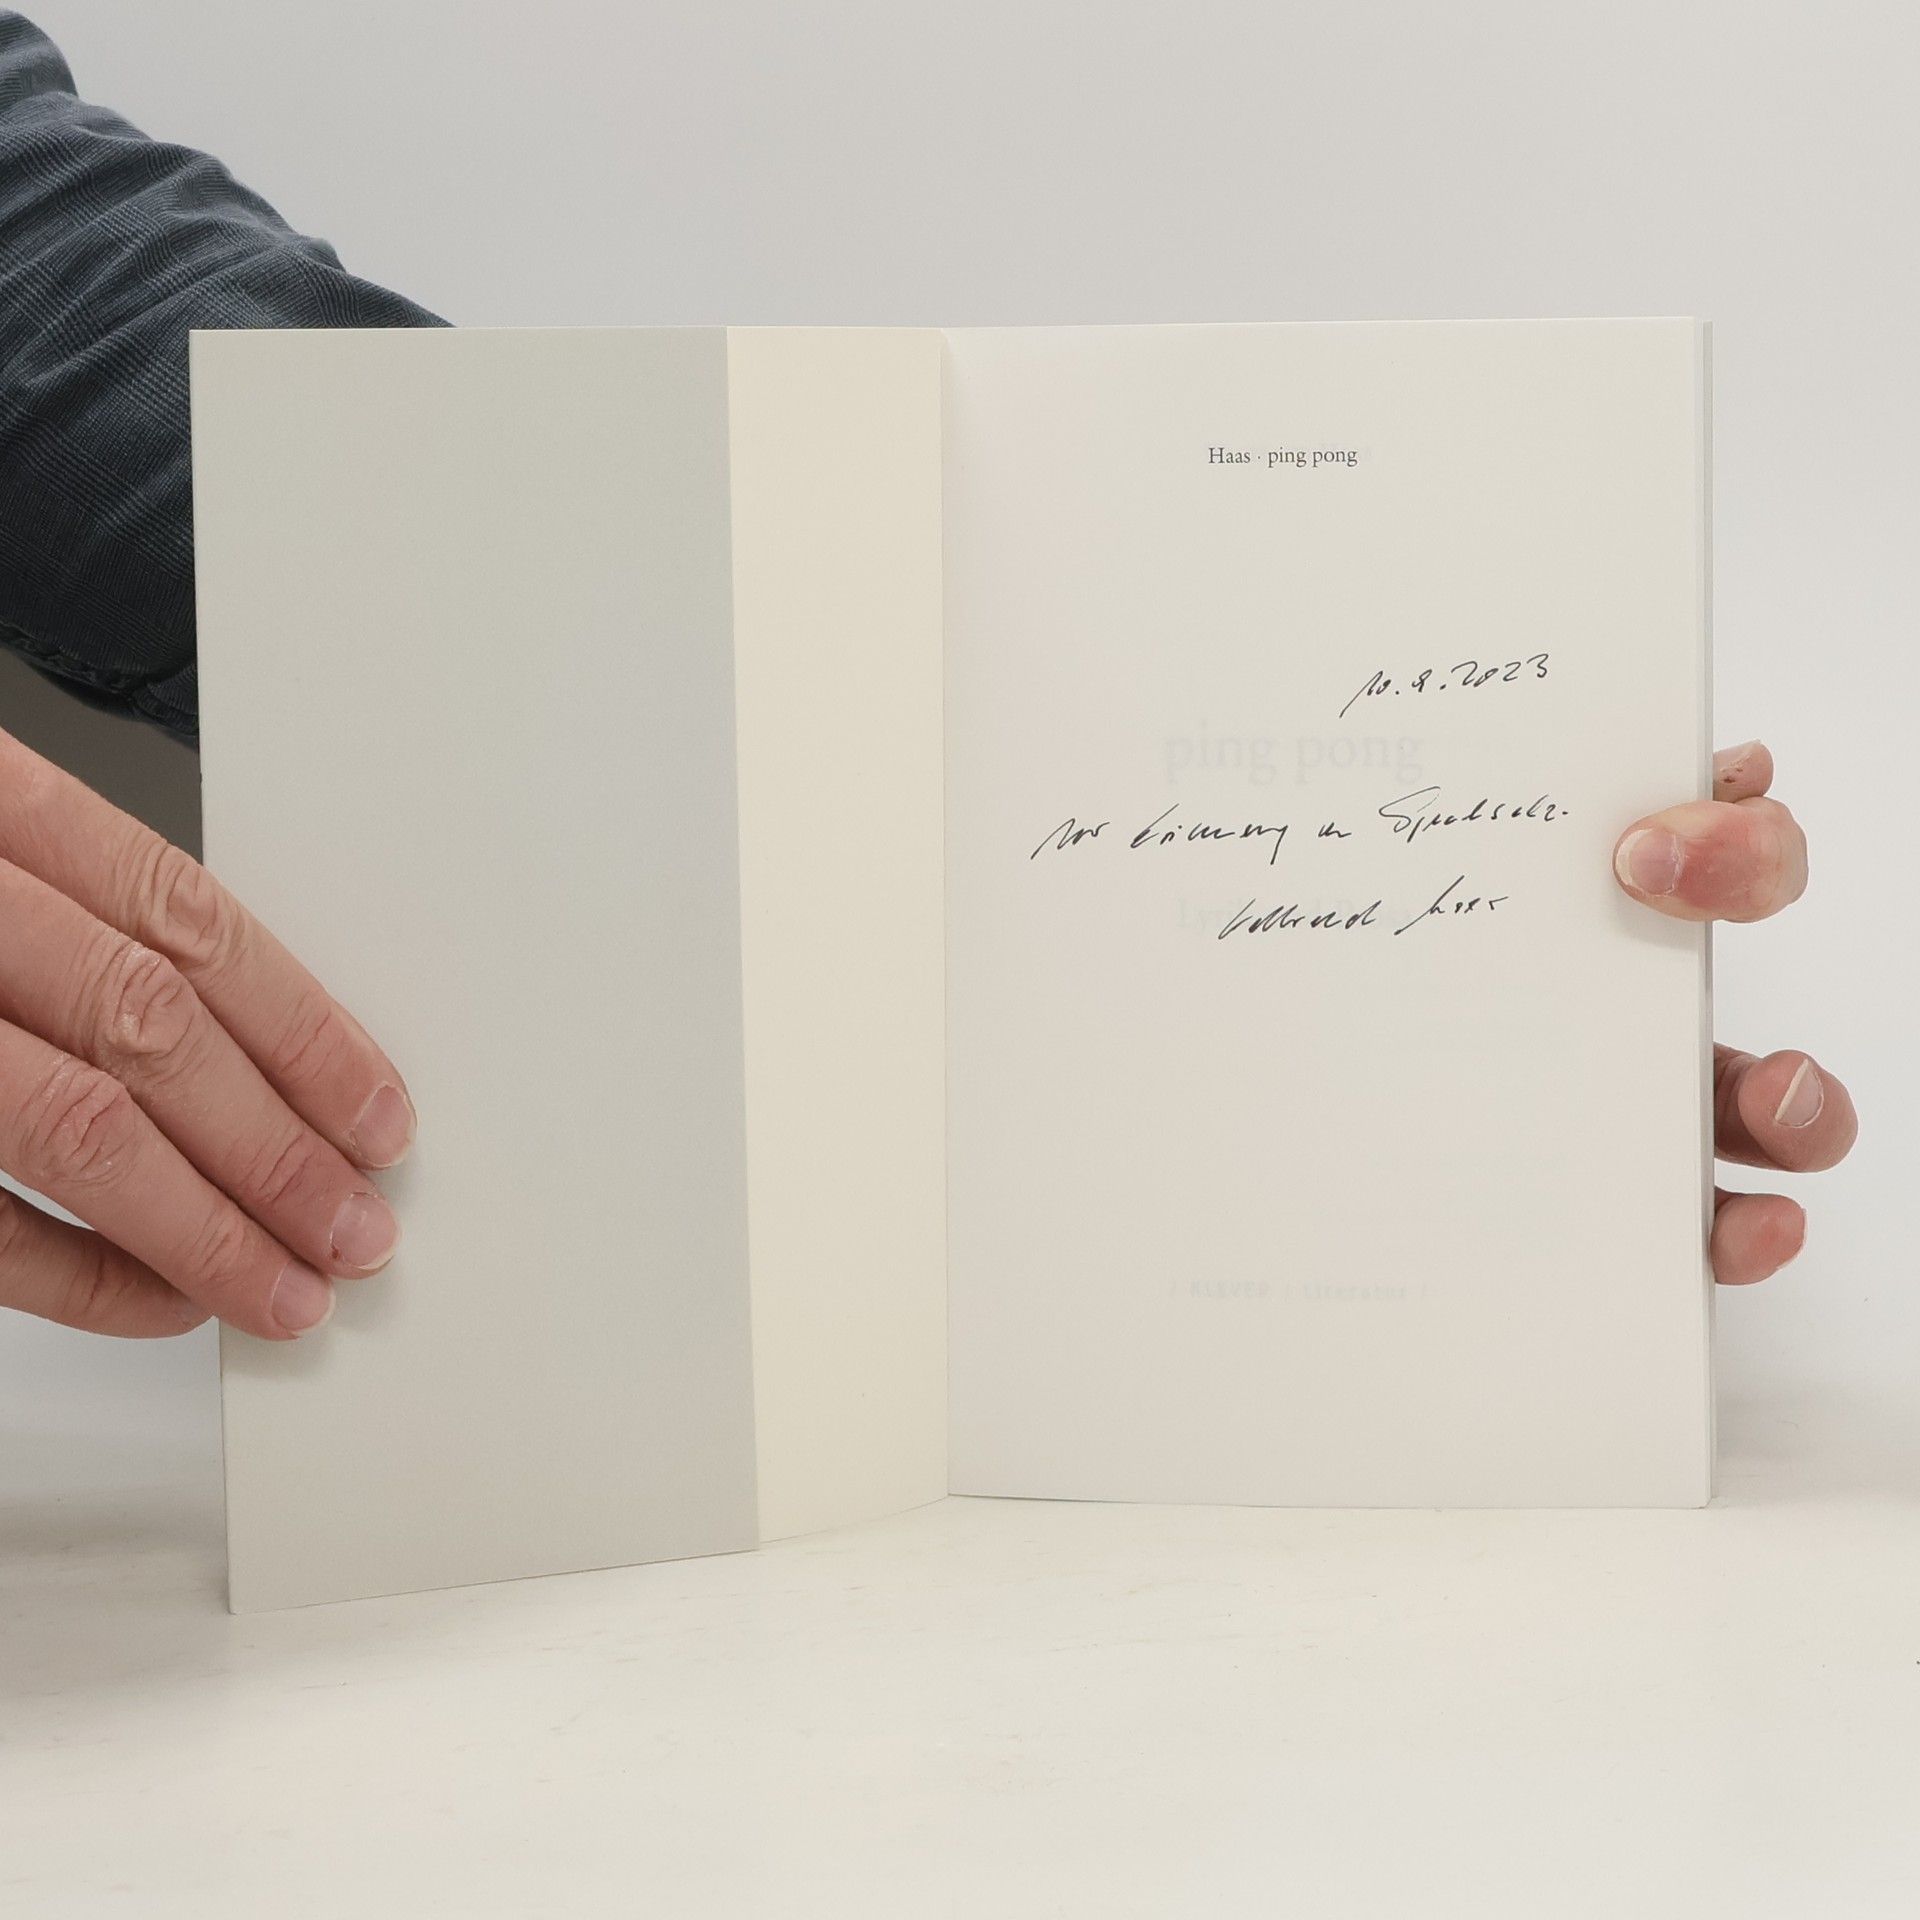 Haas · ping pong
10.9.2023
ping pong
zur Erinnerung an Sprachsalz.
Vollrad Haas
/ KLEVER / Literatur /